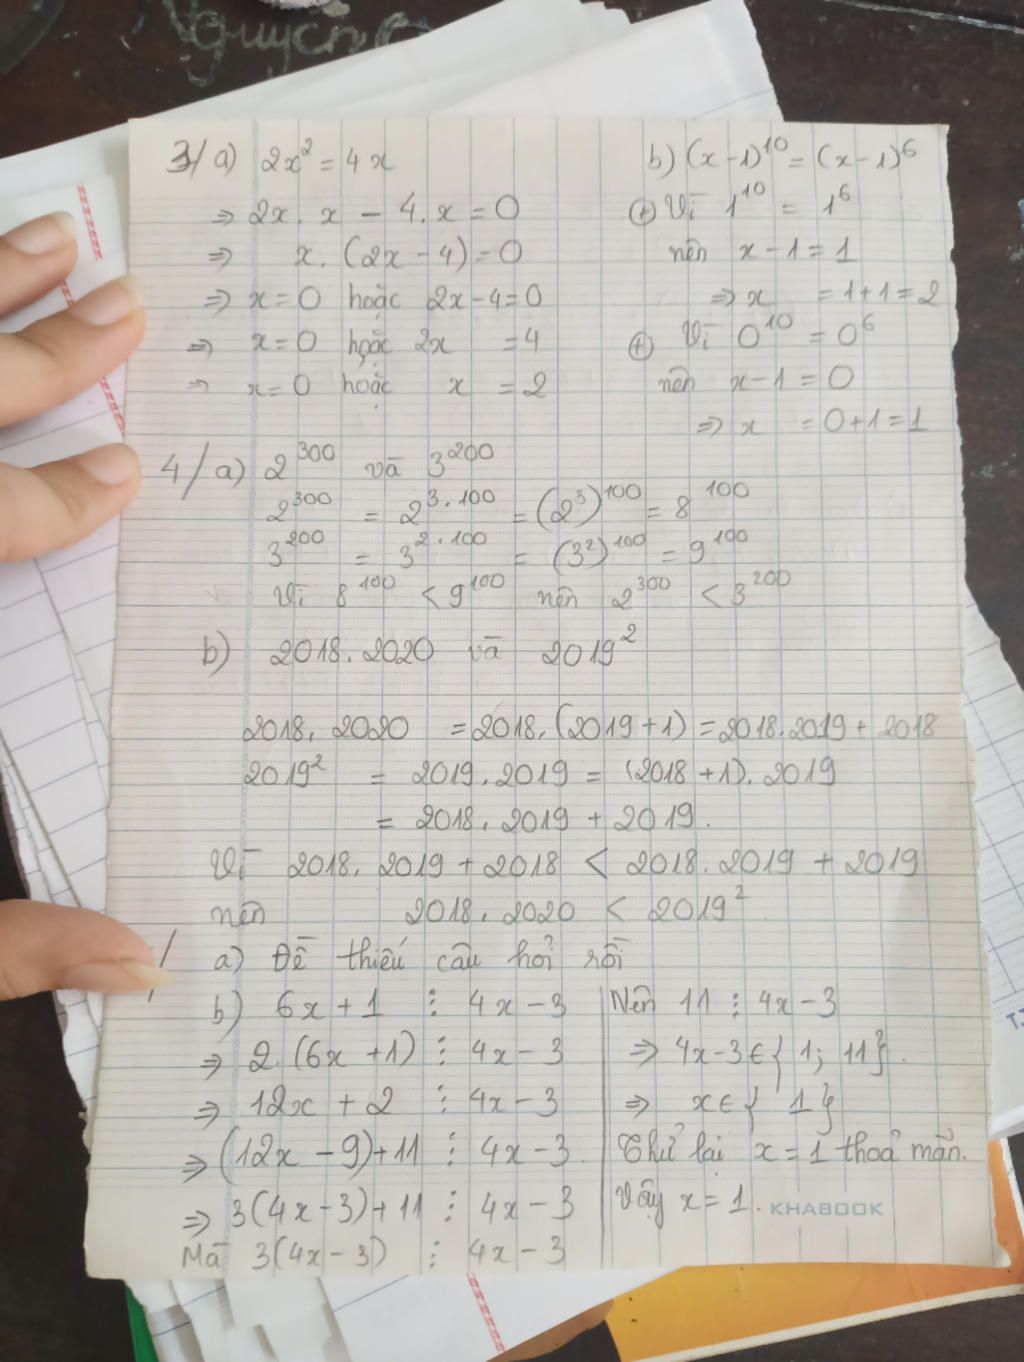 3/ a) 2x² = 4x
⇒ 2x. x - 4. x = 0
⇒ x. (2x - 4) = 0
⇒ x = 0 hoặc 2x - 4 = 0
⇒ x = 0 hoặc 2x = 4
⇒ x = 0 hoặc x = 2
b) (x - 1)¹⁰ = (x - 1)⁶
⊕ Vì 1¹⁰ = 1⁶
nên x - 1 = 1
⇒ x = 1 + 1 = 2
⊕ Vì 0¹⁰ = 0⁶
nên x - 1 = 0
⇒ x = 0 + 1 = 1
4/ a) 2³⁰⁰ và 3²⁰⁰
2³⁰⁰ = 2³·¹⁰⁰ = (2³)¹⁰⁰ = 8¹⁰⁰
3²⁰⁰ = 3²·¹⁰⁰ = (3²)¹⁰⁰ = 9¹⁰⁰
Vì 8¹⁰⁰ < 9¹⁰⁰ nên 2³⁰⁰ < 3²⁰⁰
b) 2018. 2020 và 2019²
2018. 2020 = 2018. (2019 + 1) = 2018. 2019 + 2018
2019² = 2019. 2019 = (2018 + 1). 2019
= 2018. 2019 + 2019.
Vì 2018. 2019 + 2018 < 2018. 2019 + 2019
nên 2018. 2020 < 2019²
/ a) Đề thiếu câu hỏi rồi
b) 6x + 1 ⋮ 4x - 3
⇒ 2. (6x + 1) ⋮ 4x - 3
⇒ 12x + 2 ⋮ 4x - 3
⇒ (12x - 9) + 11 ⋮ 4x - 3
⇒ 3(4x - 3) + 11 ⋮ 4x - 3
Mà 3(4x - 3) ⋮ 4x - 3
Nên 11 ⋮ 4x - 3
⇒ 4x - 3 ∈ { 1; 11}.
⇒ x ∈ { 1 }
Thử lại x = 1 thoả mãn.
Vậy x = 1.
KHABOOK